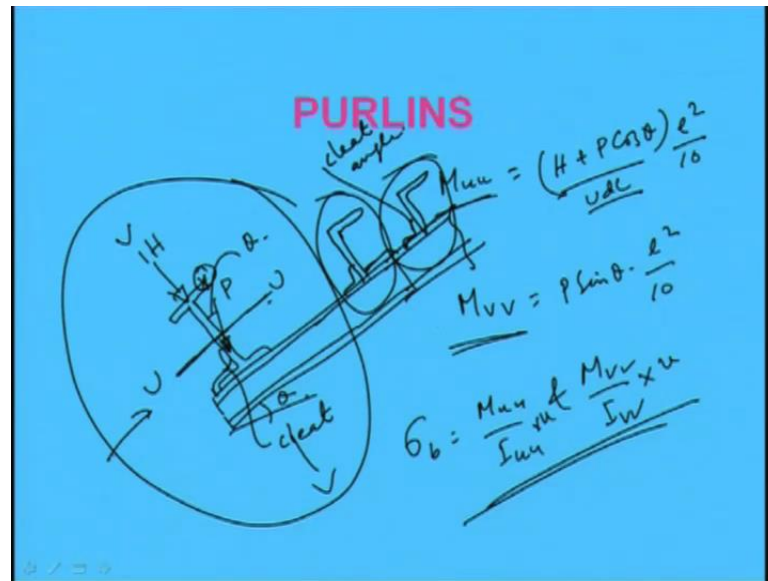 PURLINS
cleat
angle
Muu = (H + P Cosθ) l²/10
udl
Mvv = P Sinθ · l²/10
σb = Muu/Iuu × v + Mvv/Ivv × u
V
H
θ
P
U
U
θ
cleat
V